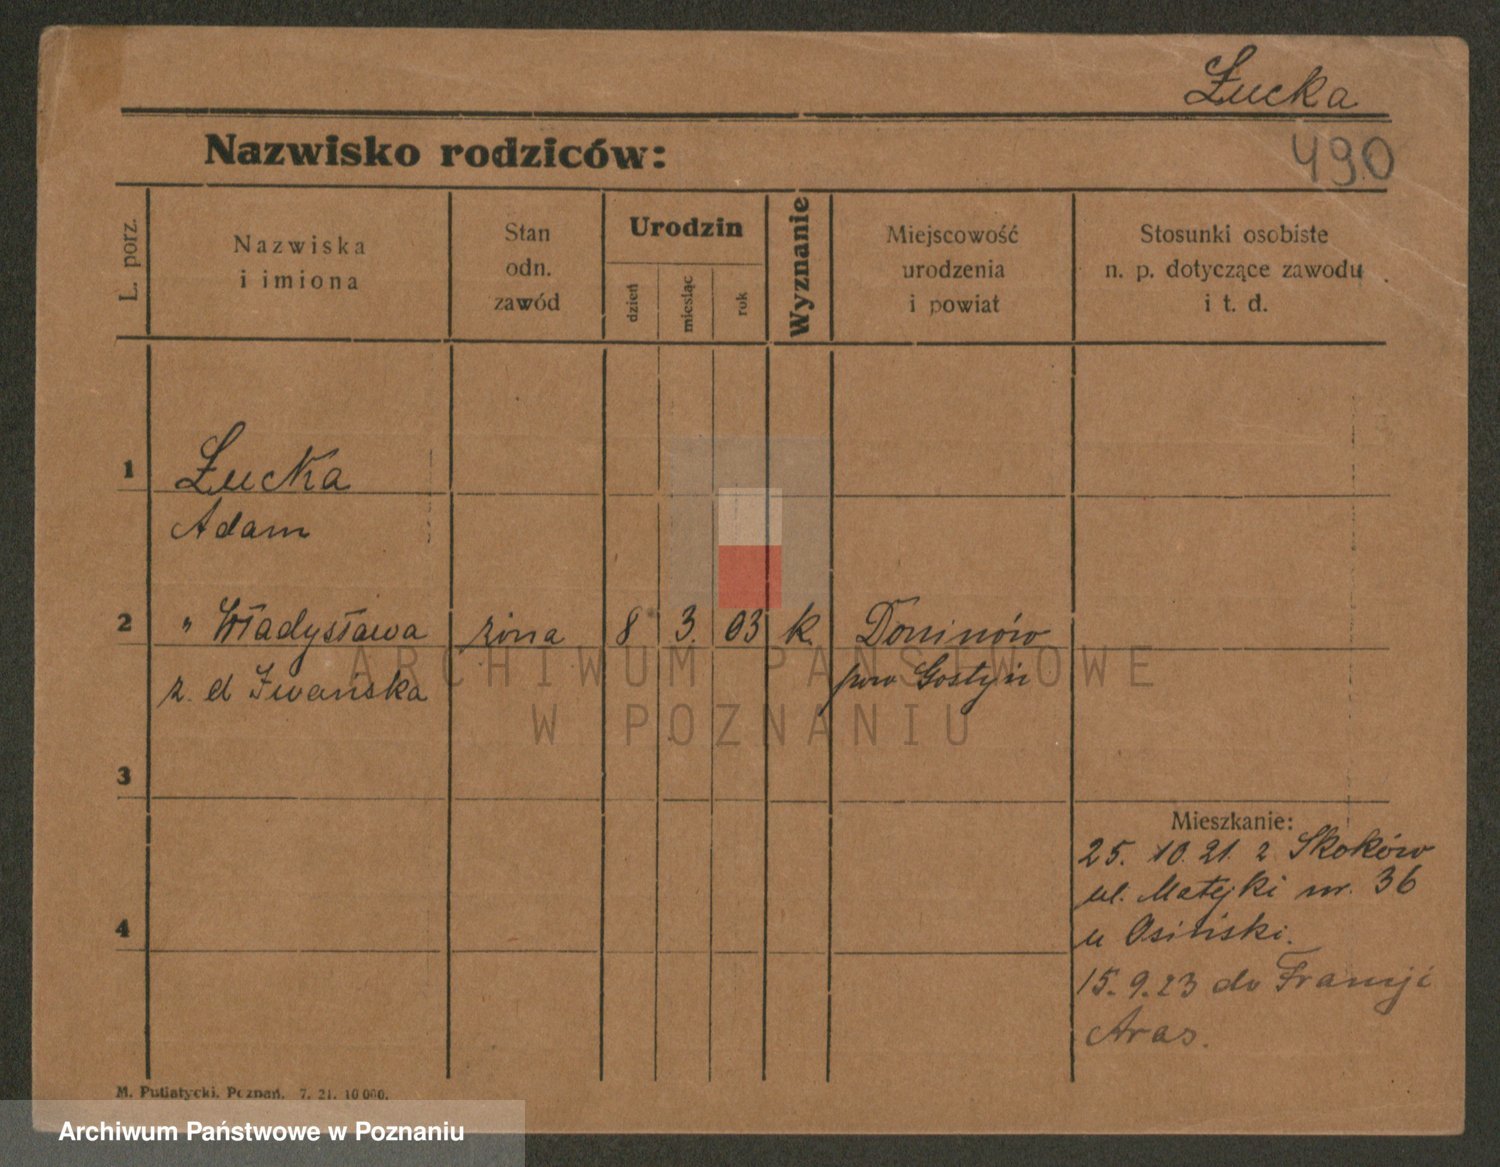 Łucka
490
Nazwisko rodziców:
L. porz.
Nazwiska
i imiona
Stan
odn.
zawód
Urodzin
dzień
miesiąc
rok
Wyznanie
Miejscowość
urodzenia
i powiat
Stosunki osobiste
n. p. dotyczące zawodu
i t. d.
1 Łucka
Adam
2 " Władysława żona 8 3. 03 k. Doninów
z. d Iwańska pow Gostyń
ARCHIWUM PAŃSTWOWE
W POZNANIU
3
Mieszkanie:
25. 10. 21. z Skoków
ul. Matejki nr. 36
u Osiński.
4
15. 9. 23 do Francji
Aras.
M. Putiatycki, Poznań. 7. 21. 10 000.
Archiwum Państwowe w Poznaniu